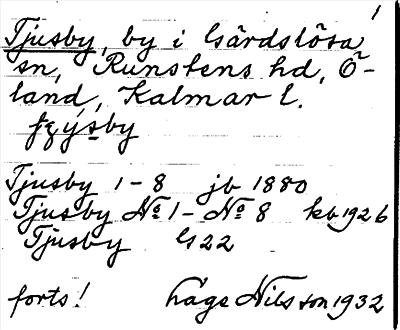 1
Tjusby, by i Gärdslösa
sn, Runstens hd, Ö-
land, Kalmar l.
Tjusby 1-8 jb 1880
Tjusby No 1 - No 8 kb 1926
Tjusby G22
forts! Håge Nilsson 1932